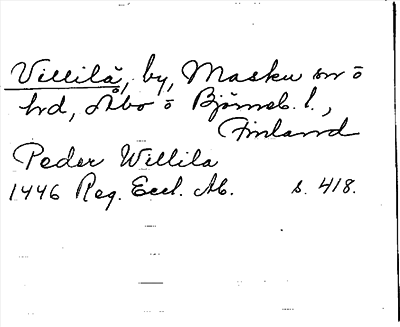 Villilä, by, Masku sn o
hd, Åbo o Björneb. l.,
Finland
Peder Willila
1446 Reg. Eccl. Ab. s. 418.